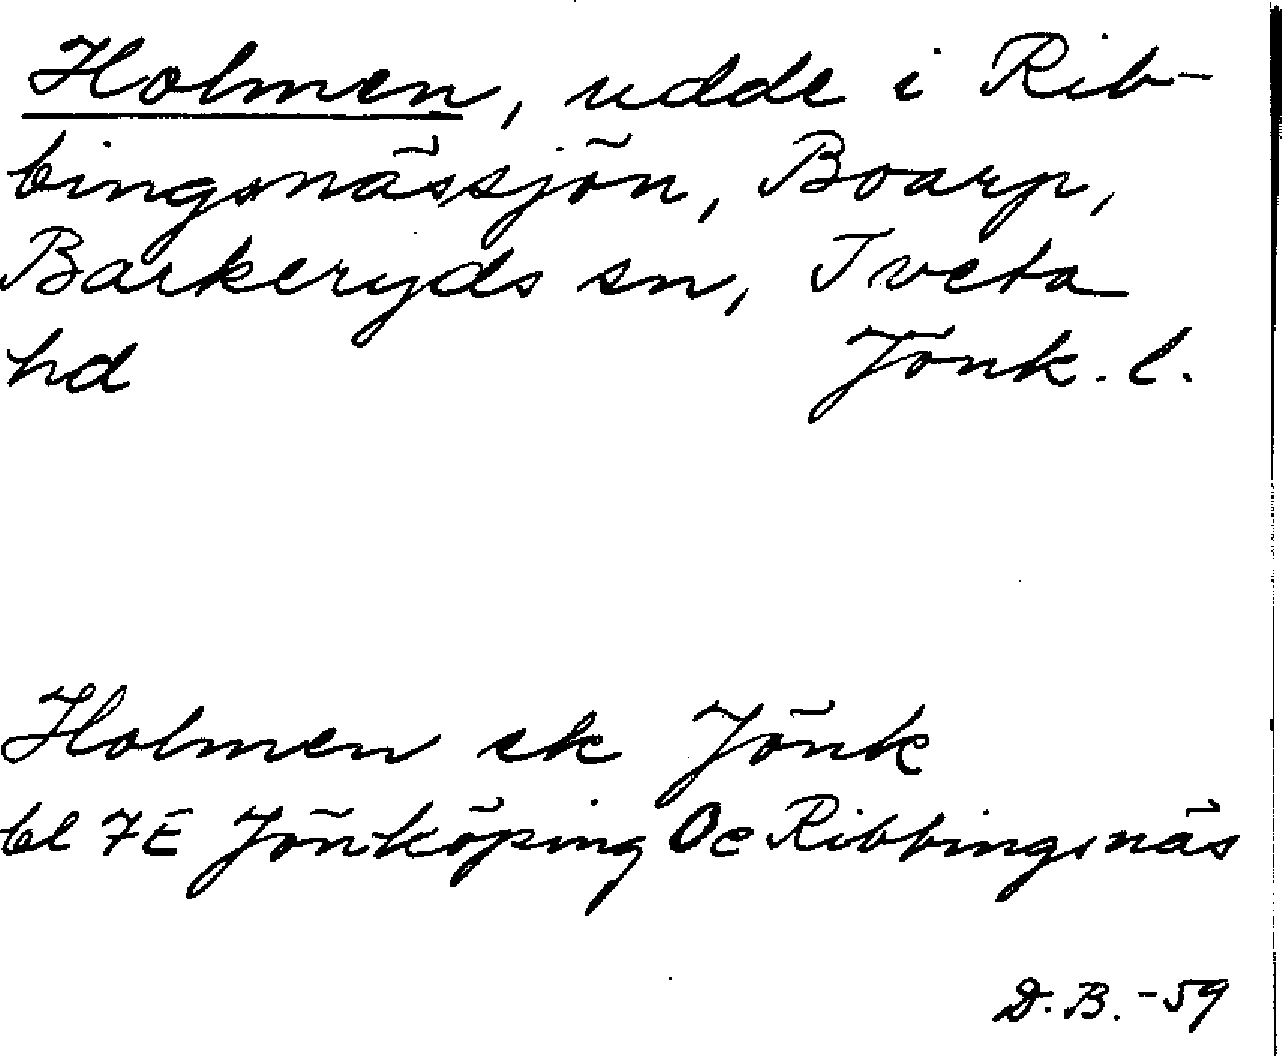 Holmen, udde i Rib-
bingsnässjön, Boarp,
Barkeryds sn, Tveta
hd Jönk. l.
Holmen ek Jönk
bl 7E Jönköping Oe Ribbingsnäs
D.B. -59